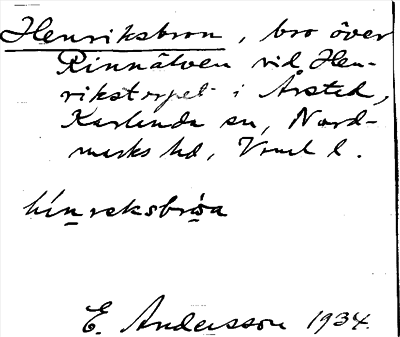 Henriksbron, bro över
Rinnälven vid Hen-
rikstorpet i Årsted,
Karlanda sn, Nord-
marks hd, Vrml l.
hìn̲reksbròa
E. Andersson 1934.